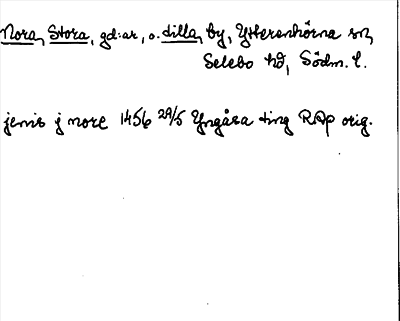 Nora, Stora, gd:ar, o. Lilla, by, Ytterenhörna sn,
Selebo hd, Södm. l.
jenis j nore 1456 29/5 Yngåsa ting RAp orig.